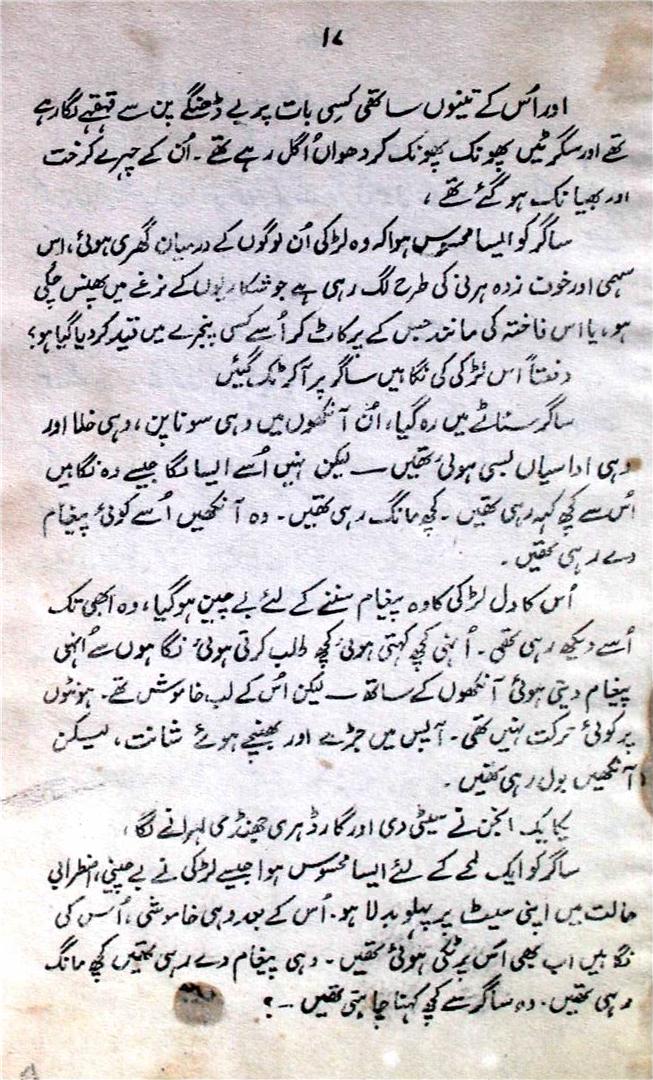 ۱۷
اور اُس کے تینوں ساتھی کسی بات پر بے ڈھنگے پن سے قہقہے لگا رہے
تھے اور سگرٹیں پھونک پھونک کر دھواں اُگل رہے تھے۔ اُن کے چہرے کرخت
اور بھیانک ہو گئے تھے،
ساگر کو ایسا محسوس ہوا کہ وہ لڑکی اُن لوگوں کے درمیان گھری ہوئی، اس
سہمی اور خوف زدہ ہرنی کی طرح لگ رہی ہے جو شکاریوں کے نرغے میں پھنس چکی
ہو، یا اس فاختہ کی مانند جس کے پر کاٹ کر اُسے کسی پنجرے میں قید کر دیا گیا ہو؟
دفعتاً اس لڑکی کی نگاہیں ساگر پر آ کر ٹک گئیں
ساگر سناٹے میں رہ گیا، اُن آنکھوں میں وہی سوناپن، وہی خلا اور
وہی اداسیاں بسی ہوئی تھیں — لیکن نہیں اُسے ایسا لگا جیسے وہ نگاہیں
اُس سے کچھ کہہ رہی تھیں۔ کچھ مانگ رہی تھیں۔ وہ آنکھیں اُسے کوئی پیغام
دے رہی تھیں۔
اُس کا دل لڑکی کا وہ پیغام سننے کے لئے بے چین ہو گیا، وہ ابھی تک
اُسے دیکھ رہی تھی۔ اُنہی کچھ کہتی ہوئی کچھ طلب کرتی ہوئی نگاہوں سے اُنہی
پیغام دیتی ہوئی آنکھوں کے ساتھ — لیکن اُس کے لب خاموش تھے۔ ہونٹوں
پر کوئی حرکت نہیں تھی۔ آپس میں جڑے اور بھنچے ہوئے شانت، لیکن
آنکھیں بول رہی تھیں۔
یکایک انجن نے سیٹی دی اور گارڈ ہری جھنڈی لہرانے لگا،
ساگر کو ایک لمحے کے لئے ایسا محسوس ہوا جیسے لڑکی نے بے چینی، اضطرابی
حالت میں اپنی سیٹ پر پہلو بدلا ہو۔ اُس کے بعد وہی خاموشی، اُس کی
نگاہیں اب بھی اُس پر ٹکی ہوئی تھیں۔ وہی پیغام دے رہی تھیں کچھ مانگ
رہی تھیں۔ وہ ساگر سے کچھ کہنا چاہتی تھیں —؟